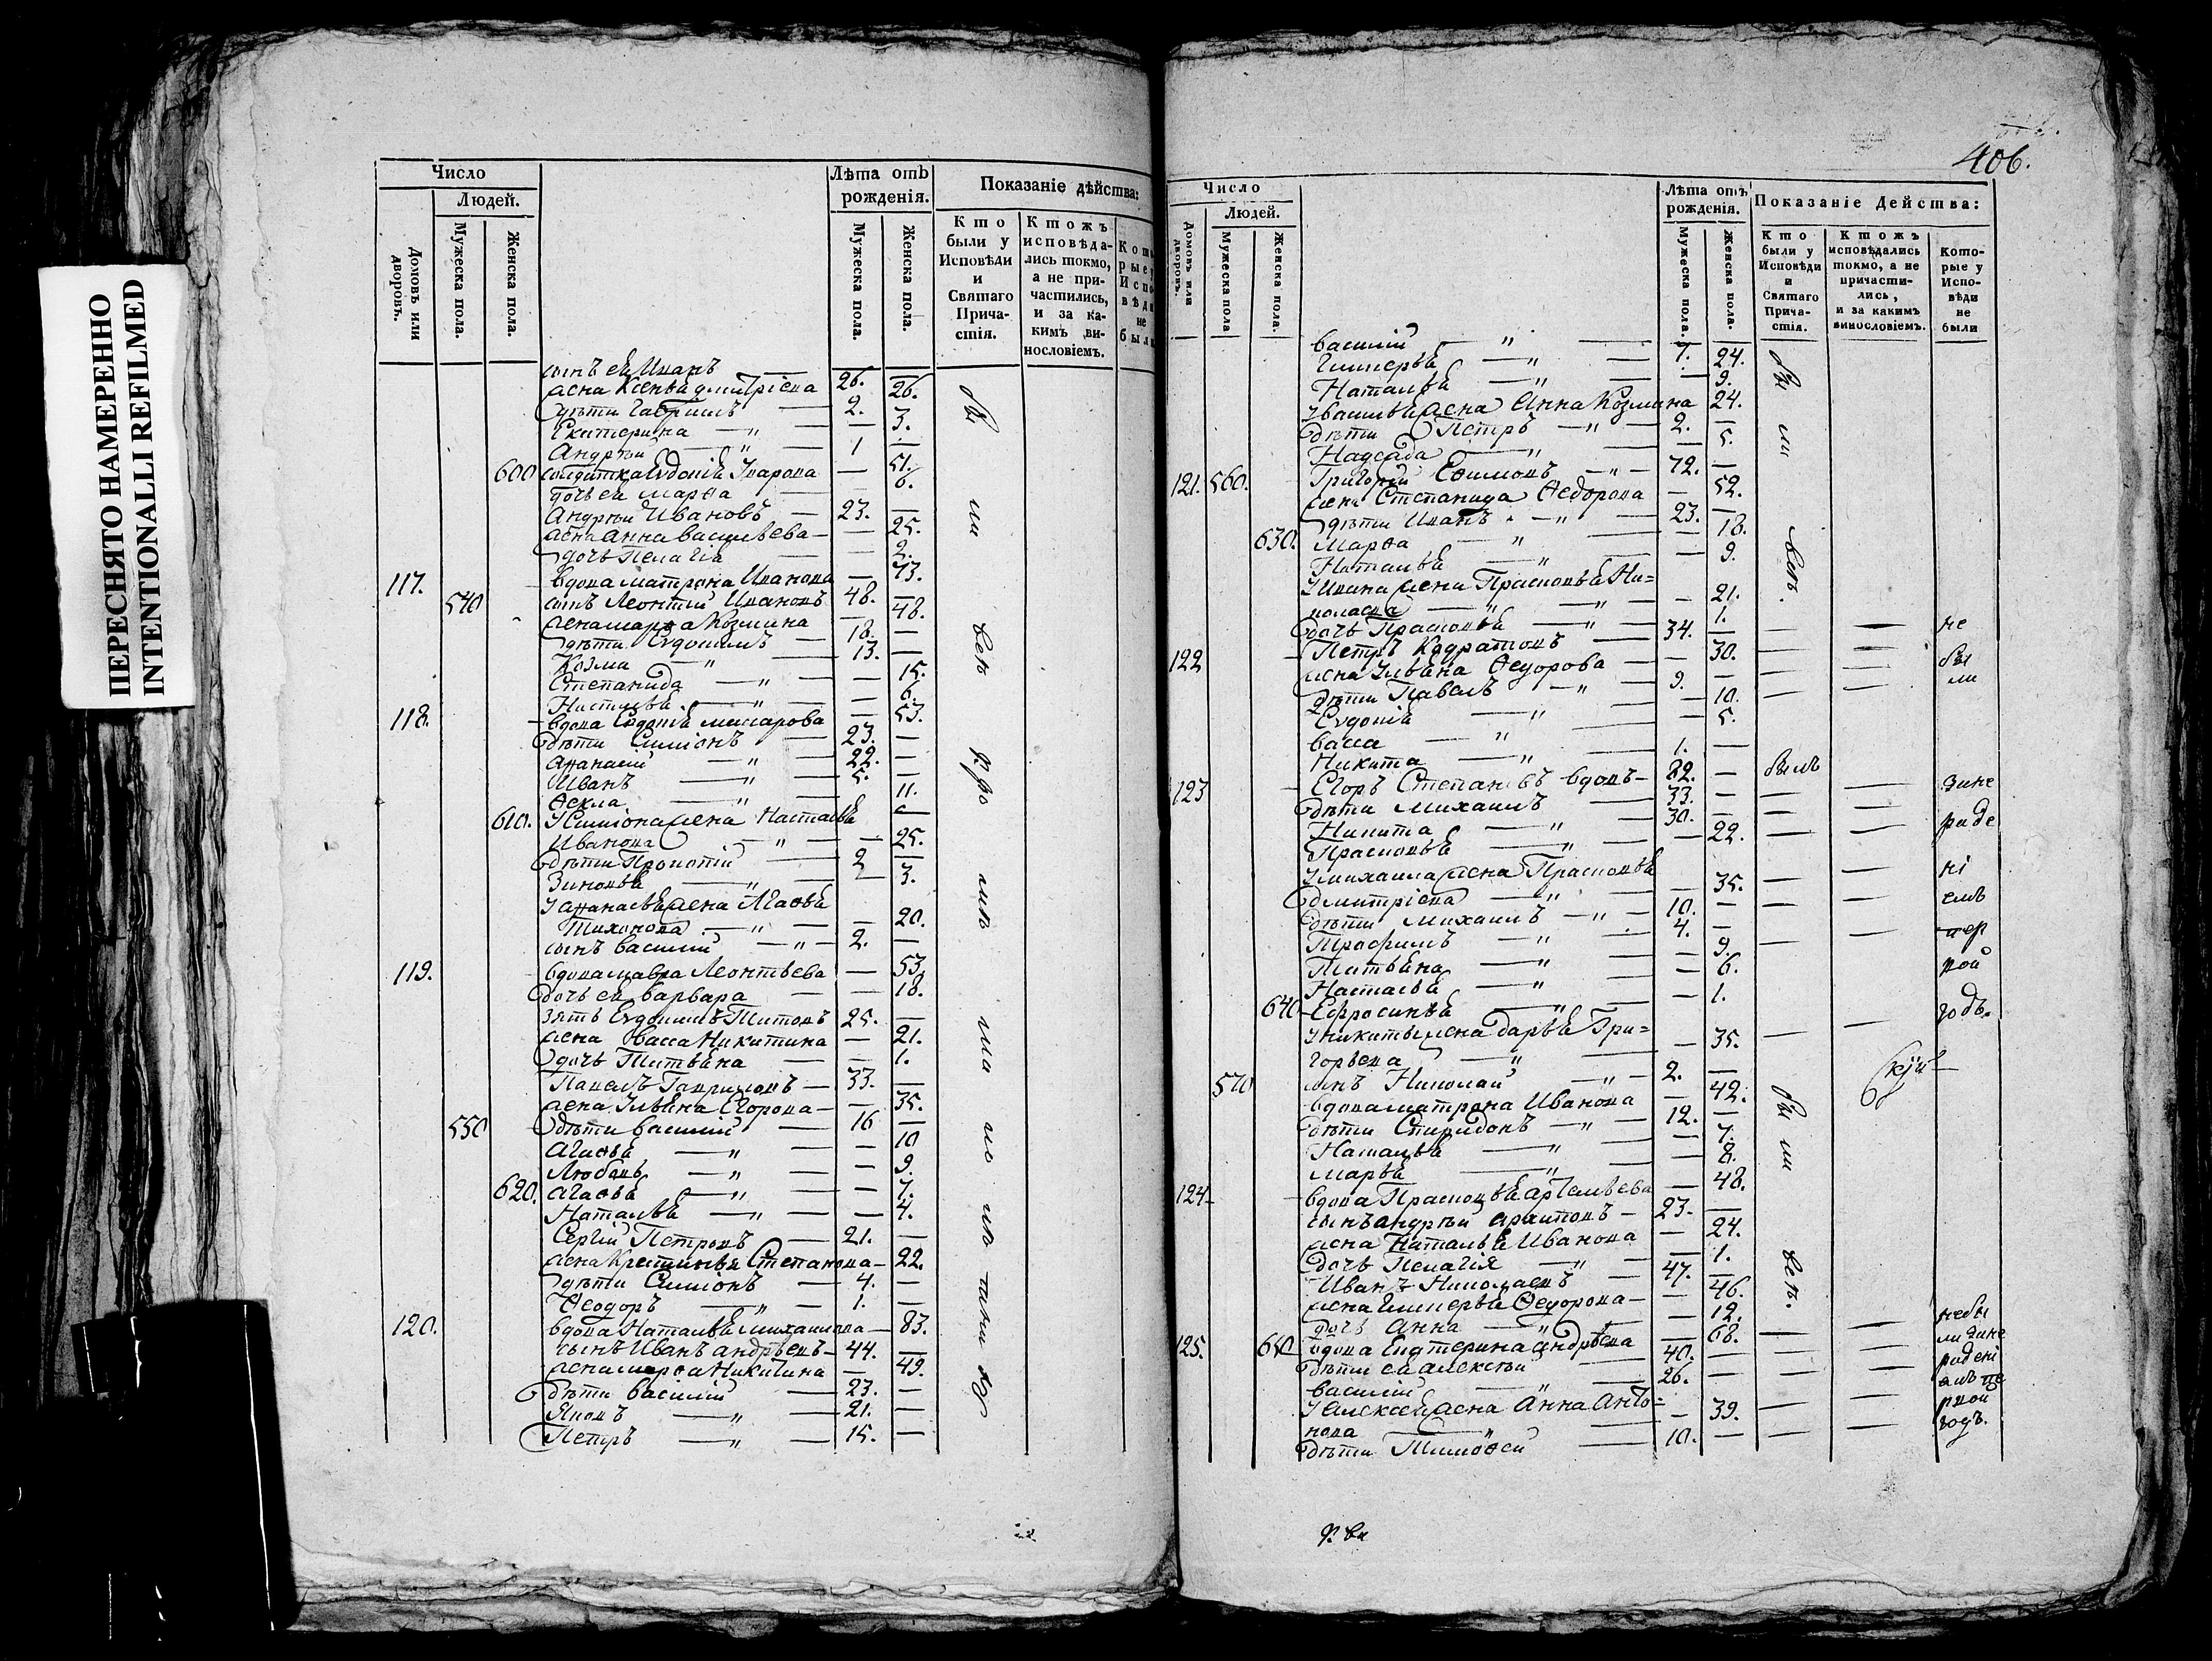 ПЕРЕСНЯТО НАМЕРЕННО
INTENTIONALLI REFILMED
Число
Людей.
Домовъ или дворовъ.
Мужеска пола.
Женска пола.
Лѣта отъ рожденія.
Мужеска пола.
Женска пола.
Показаніе дѣйства:
Кто были у Исповѣди и Святаго Причастія.
Ктожъ исповѣдались токмо, а не причастились, и за какимъ винословіемъ.
сынъ ея Иванъ — 26. —
жена Ксенья Дмитріева 26.
дѣти Гавріилъ — 2.
Екатерина — " — — 3.
Андрей — " — 1 —
600 солдатка Евдокія Уварова — 51.
дочь ея Марѳа — 6.
Андрей Ивановъ — 23. —
жена Анна Васильева — — 25.
дочь Пелагія — — 2.
117. вдова Матрона Иванова — 73.
540 сынъ Леонтій Ивановъ 48. —
жена Марѳа Козмина — 48.
дѣти Евдокимъ — 18. —
Козма — " — 13. —
Степанида — " — — 15.
Наталья — " — — 6.
118. вдова Евдокія Макарова — 53.
дѣти Симіонъ — 23. —
Аѳанасій — " — 22. —
Иванъ — " — 5. —
Ѳекла — " — 11.
610. У Симіона жена Настасья
Иванова — " — — 25.
дѣти Прокопій — 2 —
Зиновья — " — — 3.
У Аѳанасья жена Агаѳья
Тихонова — " — — 20.
сынъ Василій — " — 2. —
119. вдова Мавра Леонтьева — 53.
дочь ея Варвара — — 18.
зять Евдокимъ Титовъ 25. —
жена Васса Никитина — 21.
дочь Татьяна — — 1.
Павелъ Гавриловъ — 33. —
жена Ульяна Егорова — — 35.
550 дѣти Василій — 16 —
Агаѳья — " — — 10
Любовь — " — — 9.
620. Агаѳья — " — — 7.
Наталья — " — — 4.
Сергій Петровъ — 21. —
жена Крестинья Степанова — 22.
дѣти Симіонъ — 4. —
Ѳеодоръ — " — 1. —
120. вдова Наталья Михайлова — 83.
сынъ Иванъ Андреевъ — 44. —
жена Марѳа Никитина — 49.
дѣти Василій — 23. —
Яковъ — " — 21. —
Петръ — " — 15. —
бы
ли
всѣ
406.
Число
Людей.
Домовъ или дворовъ.
Мужеска пола
Женска пола.
Лѣта отъ рожденія.
Мужеска пола.
Женска пола.
Показаніе Действа:
Кто были у Исповѣди и Святаго Причастія.
Ктожъ исповѣдались токмо, а не причастились, и за какимъ винословіемъ.
Которые у Исповѣди не были
Василій — " — 7.
Гликерья — " — 24.
Наталья — " — — 9.
У Василья жена Анна Козмина 24.
дѣти Петръ — " — 2. —
Надежда — " — — 5.
121. 560. Григорій Ефимовъ — " — 72. —
жена Степанида Ѳедорова — 52.
дѣти Иванъ — " — 23. —
630. Марѳа — " — — 18.
Наталья — " — — 9.
У Ивана жена Прасковья Ни=
колаева — " — — 21.
дочь Прасковья — " — 1.
122 Петръ Кодратовъ — 34. —
жена Ульяна Ѳедорова — — 30.
дѣти Павелъ — " — 9. —
Евдокія — " — — 10.
Васса — " — — 5.
Никита — " — 1. —
123 Егоръ Степановъ вдовъ — 82. — былъ
дѣти Михаилъ — 33. —
Никита — " — 30. —
Прасковья — " — — 22.
У Михаила жена Прасковья
Дмитріева — " — — 35.
дѣти Михаилъ — " — 10. —
Трофимъ — " — 4. —
Татьяна — " — — 9.
Настасья — " — — 6.
640 Ефросинья — " — — 1.
У Никиты жена Дарья Гри=
горьева — " — — 35.
570 сынъ Николай — " — 2. —
вдова Матрона Иванова — 42.
дѣти Спиридонъ — " — 12. —
Наталья — " — — 7.
Марья — " — — 8.
124 вдова Прасковья Артемьева — 48.
сынъ Андрей Архиповъ — 23. —
жена Наталья Иванова — 24.
дочь Пелагія — " — — 1.
Иванъ Николаевъ — 47. —
жена Гликерья Ѳедорова — — 46.
дочь Анна — " — — 12.
125. вдова Екатерина Андреева — 68.
дѣти ея Алексей — 40. —
Василій — " — 26. —
У Алексея жена Анна Анто=
нова — " — — 39.
дѣти Тимоѳей — 10. —
бы
ли
всѣ.
не
бы
ли
зане
раде
ні
емъ
рой
годъ.
бы
ли
всѣ.
небы
ли зане
радені
емъ
рой
годъ.